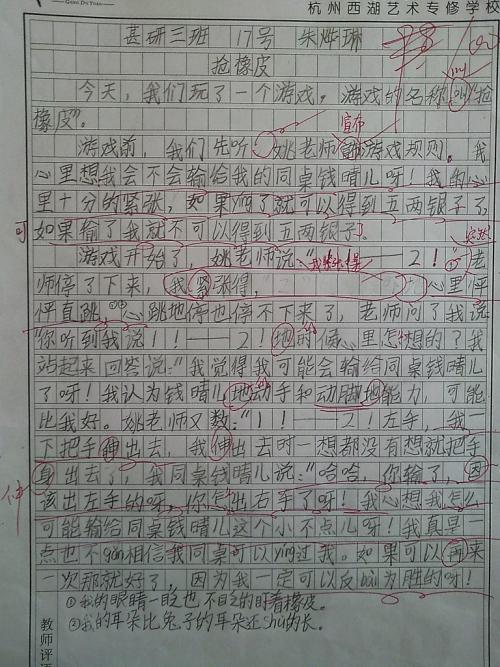 杭州西湖艺术专修学校
甚研三班 17号 朱烨琳
抢橡皮
今天，我们玩了一个游戏，游戏的名称叫"抢
橡皮"。
宣布
游戏前，我们先听 姚老师 游戏规则。我
心里想我会不会输给我的同桌钱晴儿呀！我的心
里十分的紧张，如果yíng了就可以得到五两银子了，
如果输了我就不可以得到五两银子。
游戏开始了，姚老师说："1——2！"老
突然
师停了下来，我紧张得， 心里怦
怦直跳，①②心跳地停也停不下来了，老师问了我说：
"你听到我说1！1——2！地时候心里怎想的？"我
站起来回答说："我觉得我可能会输给同桌钱晴儿
了呀！我认为钱晴儿地动手和动脚地能力，可能
比我好。姚老师又数："1！1——2！左手，我一
下把手伸出去，我伸出去时一想都没有想就把手
身出去了，我同桌钱晴儿说："哈哈，你输了，因
该出左手的呀，你怎出右手了呀！我心想我怎么
可能输给同桌钱晴儿这个小不点儿呀！我真是一
点也不gǎn相信我同桌可以yíng过我。如果可以再来
一次那就好了，因为我一定可以反bài为胜的呀！
①我的眼睛一眨也不眨的盯着橡皮。
②我的耳朵比兔子的耳朵还shù的长。
教师评语